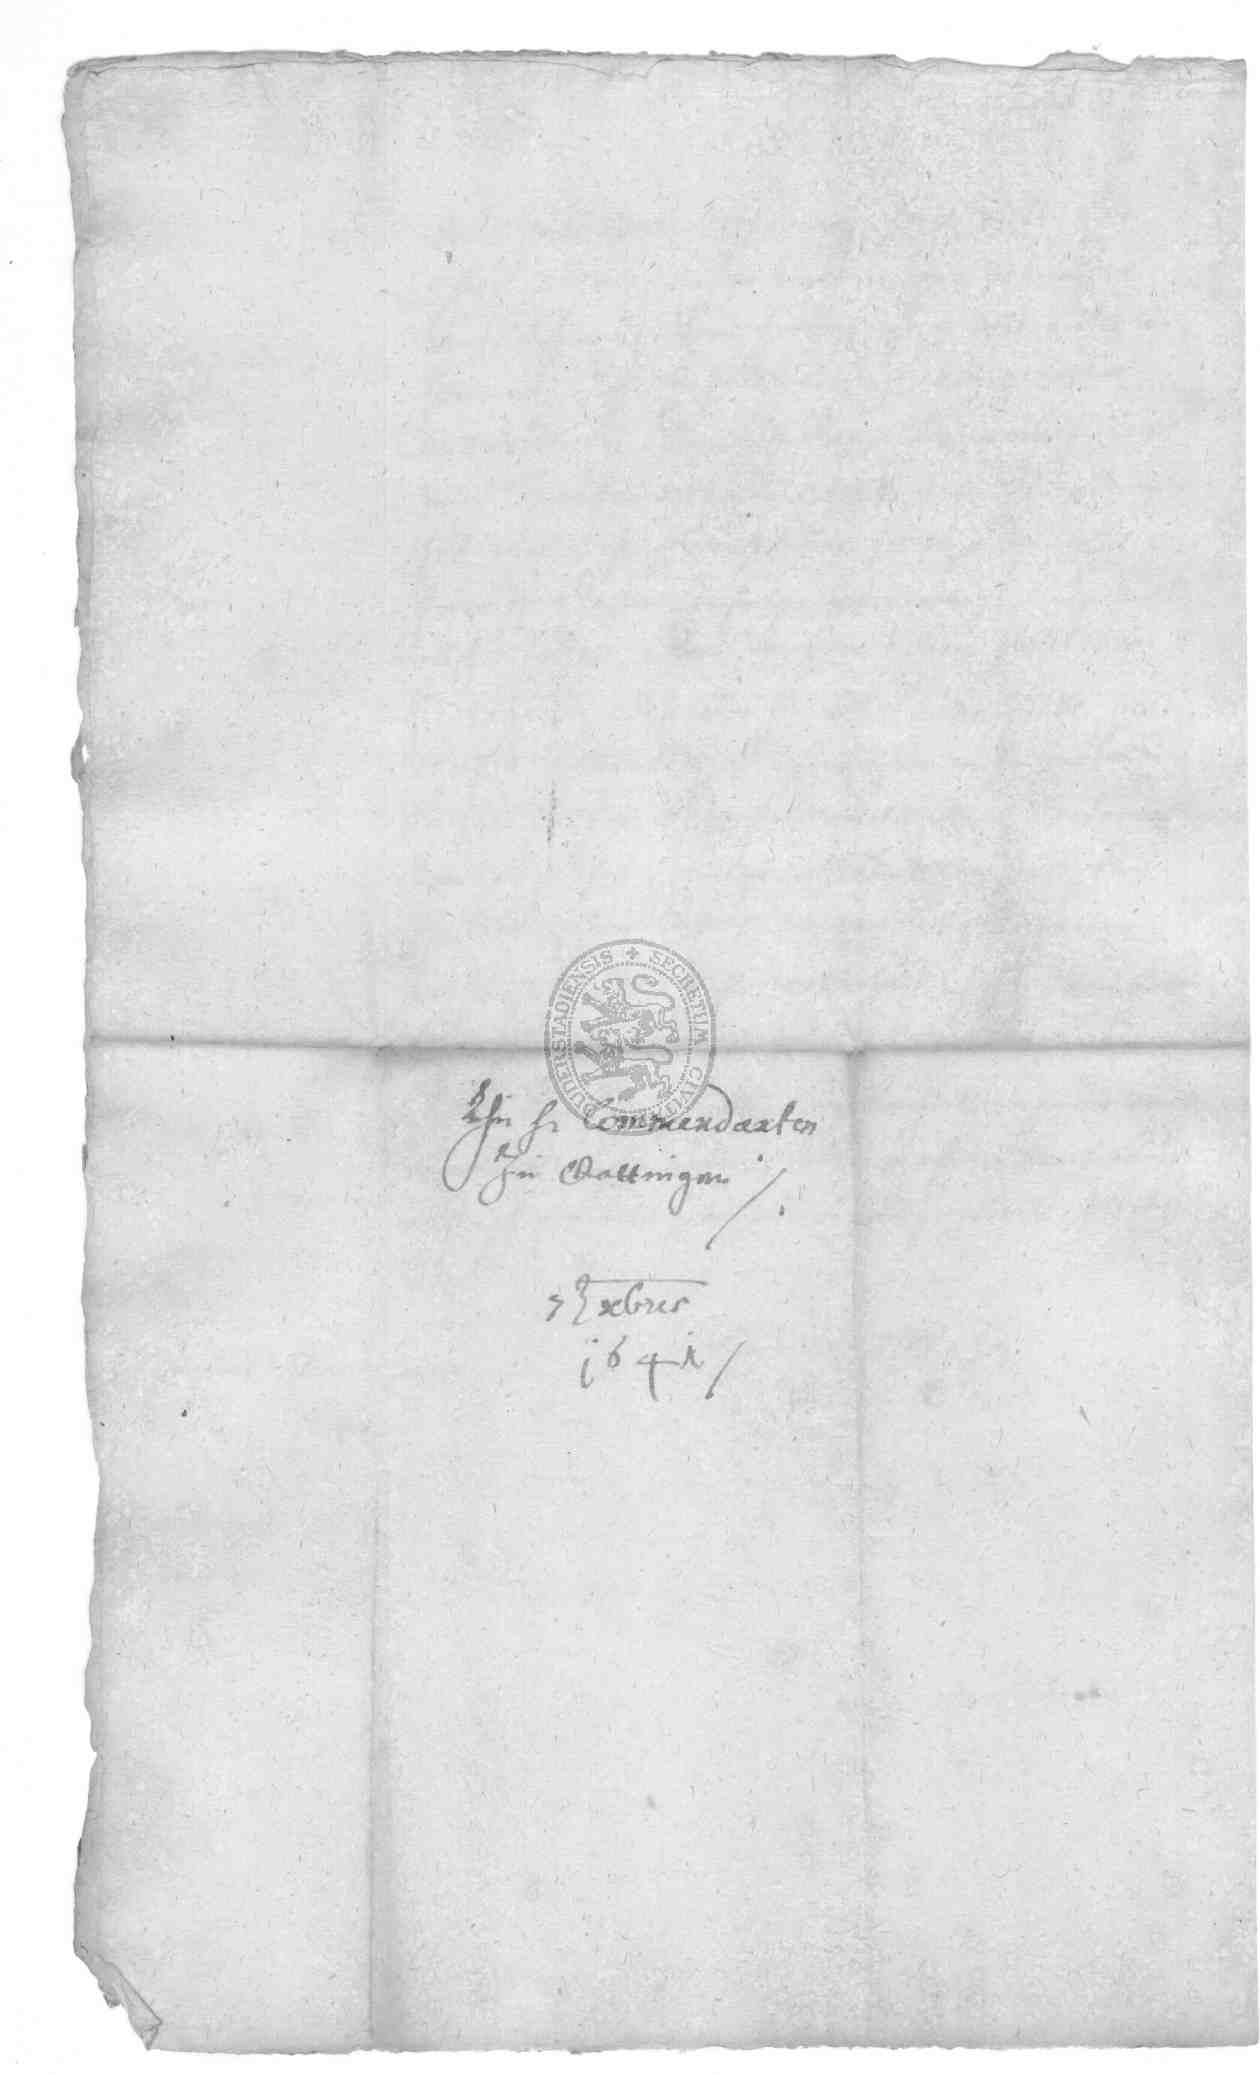 SECRETUM CIVITA DUDERSTADIENSIS
An H. Commendanten
Zu Gottingen /.
xbris
1641 /